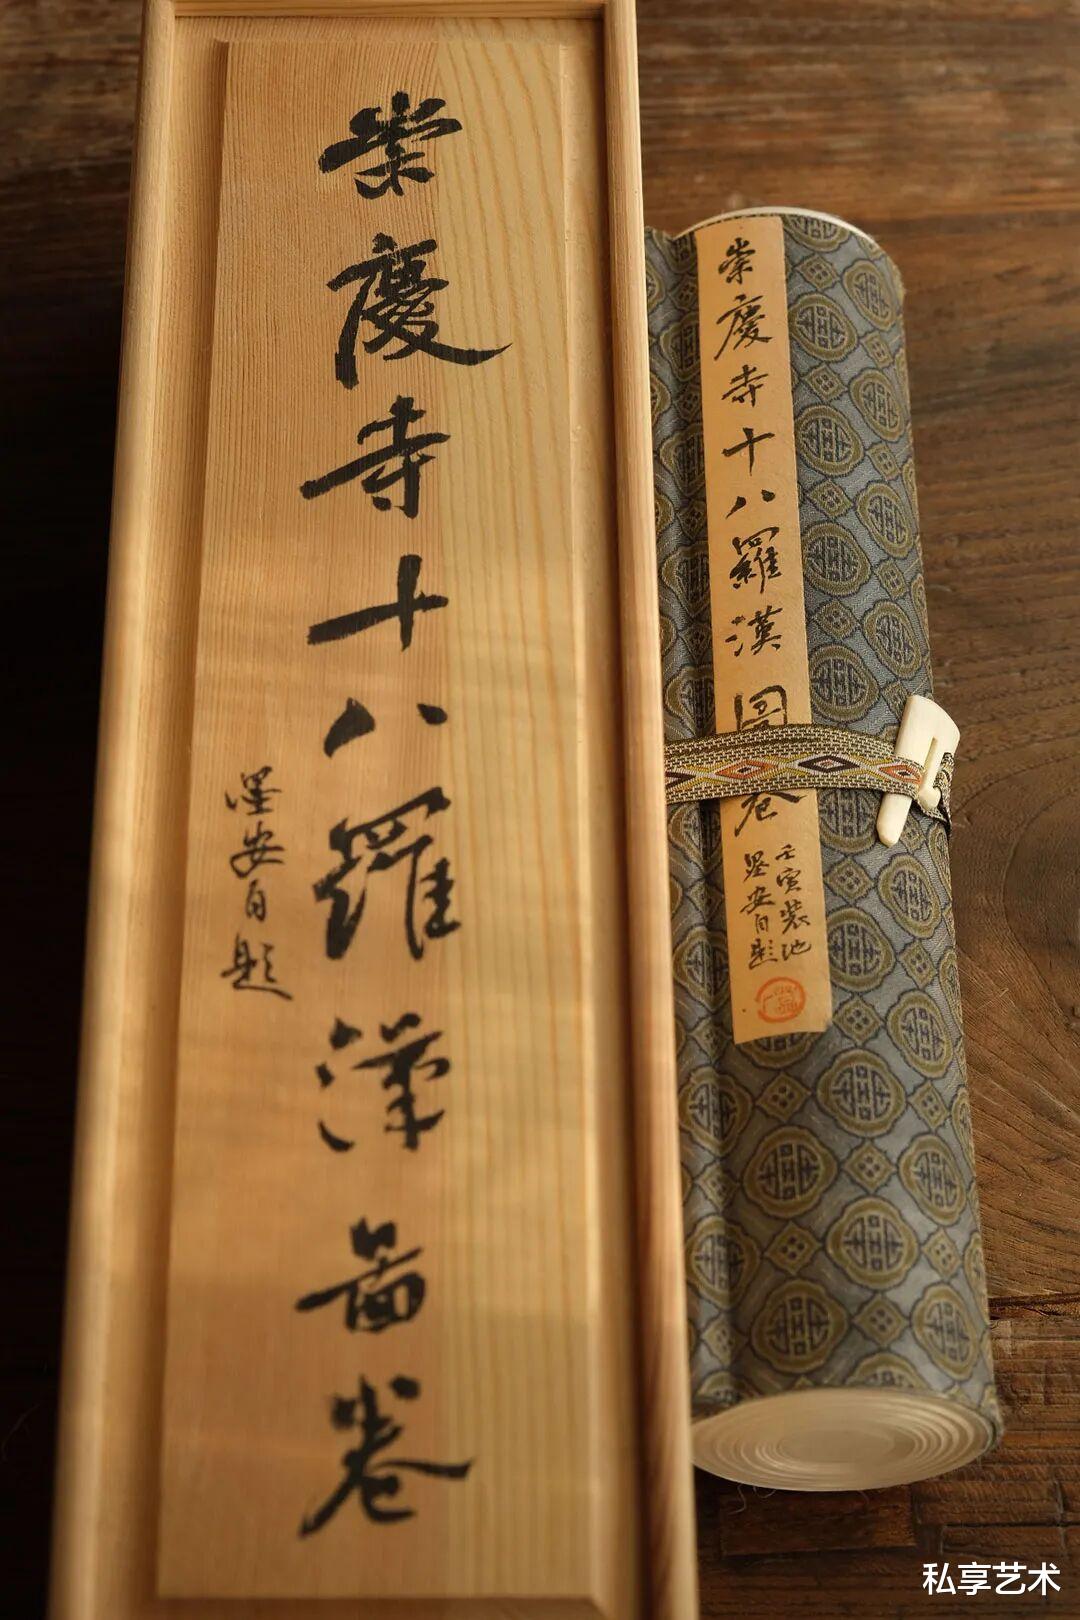 崇慶寺十八羅漢啚卷
墨安自題
崇慶寺十八羅漢圖卷
壬寅裝池
墨安自題
私享艺术